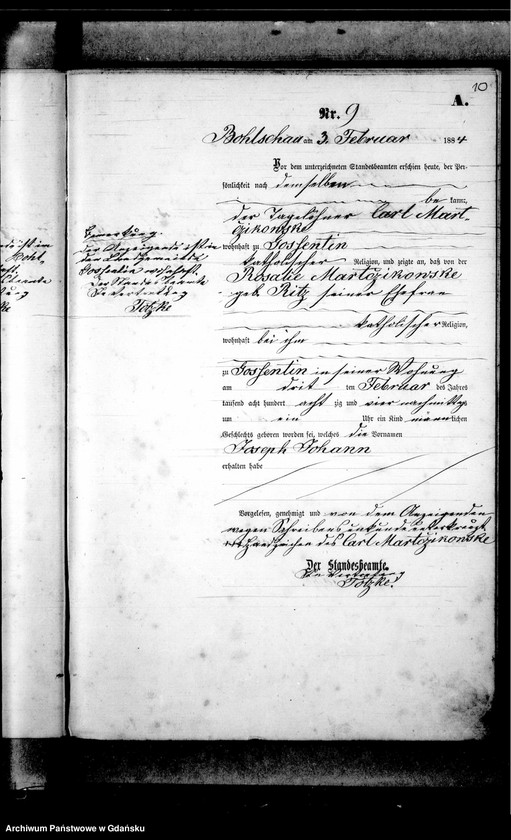 10
A.
Nr. 9
Bohlschau am 3. Februar 1884
Vor dem unterzeichneten Standesbeamten erschien heute, der Per-
sönlichkeit nach demselben
be kannt,
der Tagelöhner Carl Mart-
czikowske
wohnhaft zu Gossentin
katholischer Religion, und zeigte an, daß von der
Rosalie Martczikowske
geb. Ritz seiner Ehefrau
katholischer Religion,
wohnhaft bei ihm
zu Gossentin in seiner Wohnung
am drit ten Februar des Jahres
tausend acht hundert acht zig und vier nachmittags
um ein Uhr ein Kind männlichen
Geschlechts geboren worden sei, welches die Vornamen
Joseph Johann
erhalten habe
Vorgelesen, genehmigt und von dem Anzeigenden
wegen Schreibensunkunde unterkreuzt
+++ Handzeichen des Carl Martczikowske
Der Standesbeamte.
In Vertretung
Totzke.
Bemerkung.
der Anzeigende ist in
der Landgemeinde
Gossentin wohnhaft.
Der Standesbeamte
In Vertretung
Totzke
Archiwum Państwowe w Gdańsku